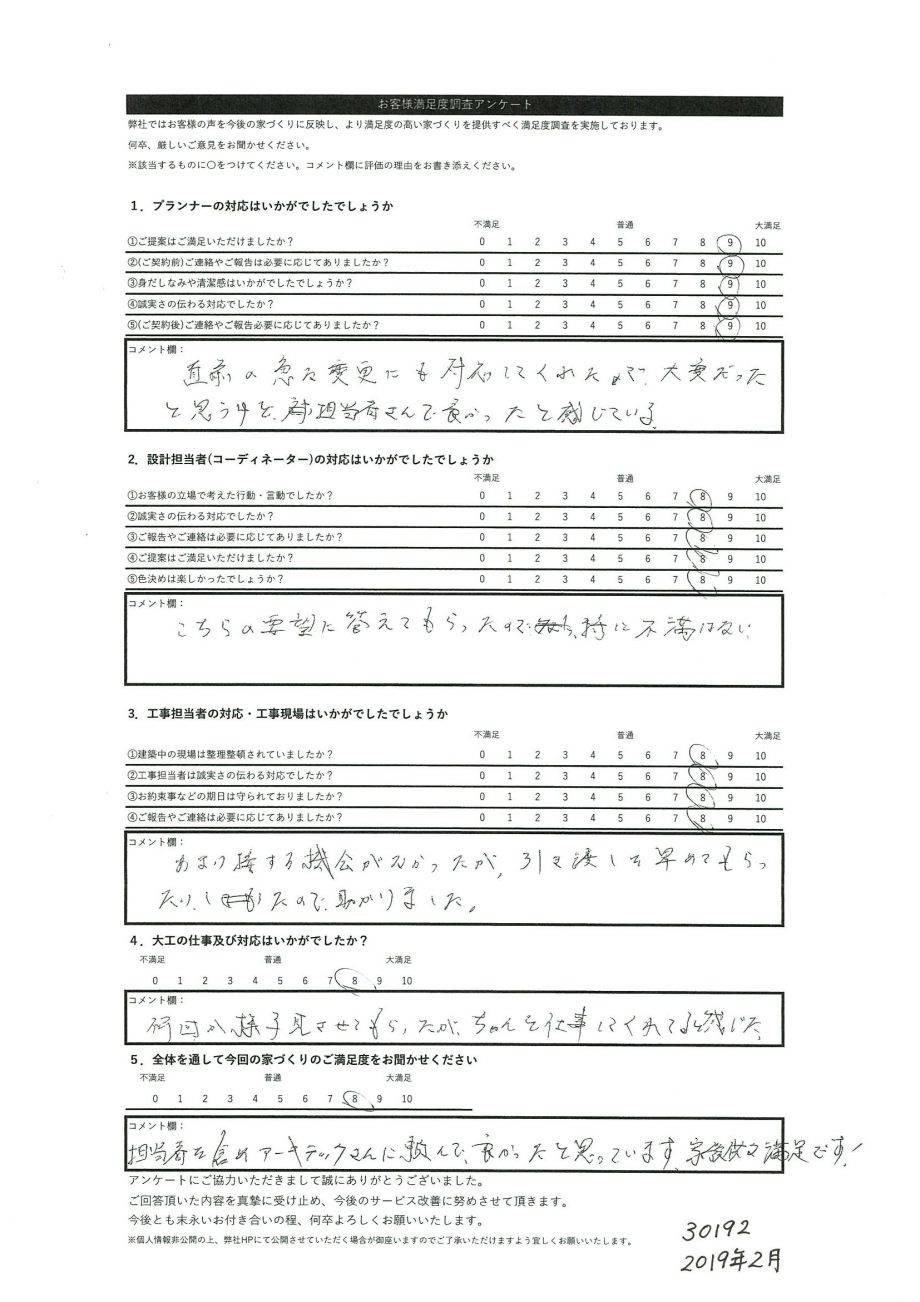 お客様満足度調査アンケート
弊社ではお客様の声を今後の家づくりに反映し、より満足度の高い家づくりを提供すべく満足度調査を実施しております。
何卒、厳しいご意見をお聞かせください。
※該当するものに〇をつけてください。コメント欄に評価の理由をお書き添えください。
1．プランナーの対応はいかがでしたでしょうか
不満足 普通 大満足
①ご提案はご満足いただけましたか？ 0 1 2 3 4 5 6 7 8 9 10
②(ご契約前)ご連絡やご報告は必要に応じてありましたか？ 0 1 2 3 4 5 6 7 8 9 10
③身だしなみや清潔感はいかがでしたでしょうか？ 0 1 2 3 4 5 6 7 8 9 10
④誠実さの伝わる対応でしたか？ 0 1 2 3 4 5 6 7 8 9 10
⑤(ご契約後)ご連絡やご報告必要に応じてありましたか？ 0 1 2 3 4 5 6 7 8 9 10
コメント欄：
直前の急な変更にも対応してくれたので、大変だった
と思うけど、担当者さんで良かったと感じている。
2．設計担当者(コーディネーター)の対応はいかがでしたでしょうか
不満足 普通 大満足
①お客様の立場で考えた行動・言動でしたか？ 0 1 2 3 4 5 6 7 8 9 10
②誠実さの伝わる対応でしたか？ 0 1 2 3 4 5 6 7 8 9 10
③ご報告やご連絡は必要に応じてありましたか？ 0 1 2 3 4 5 6 7 8 9 10
④ご提案はご満足いただけましたか？ 0 1 2 3 4 5 6 7 8 9 10
⑤色決めは楽しかったでしょうか？ 0 1 2 3 4 5 6 7 8 9 10
コメント欄：
こちらの要望に答えてもらったので、特に不満はない。
3．工事担当者の対応・工事現場はいかがでしたでしょうか
不満足 普通 大満足
①建築中の現場は整理整頓されていましたか？ 0 1 2 3 4 5 6 7 8 9 10
②工事担当者は誠実さの伝わる対応でしたか？ 0 1 2 3 4 5 6 7 8 9 10
③お約束事などの期日は守られておりましたか？ 0 1 2 3 4 5 6 7 8 9 10
④ご報告やご連絡は必要に応じてありましたか？ 0 1 2 3 4 5 6 7 8 9 10
コメント欄：
あまり接する機会がなかったが、引き渡しを早めてもらっ
たりしたので、助かりました。
4．大工の仕事及び対応はいかがでしたか？
不満足 普通 大満足
0 1 2 3 4 5 6 7 8 9 10
コメント欄：
何回か様子見させてもらったが、ちゃんと仕事してくれてると感じた。
5．全体を通して今回の家づくりのご満足度をお聞かせください
不満足 普通 大満足
0 1 2 3 4 5 6 7 8 9 10
コメント欄：
担当者を含めアーキテックさんに頼んで、良かったと思っています。家族皆満足です！
アンケートにご協力いただきまして誠にありがとうございました。
ご回答頂いた内容を真摯に受け止め、今後のサービス改善に努めさせて頂きます。
今後とも末永いお付き合いの程、何卒よろしくお願いいたします。
※個人情報非公開の上、弊社HPにて公開させていただく場合が御座いますのでご了承いただけますよう宜しくお願いいたします。
30192
2019年2月